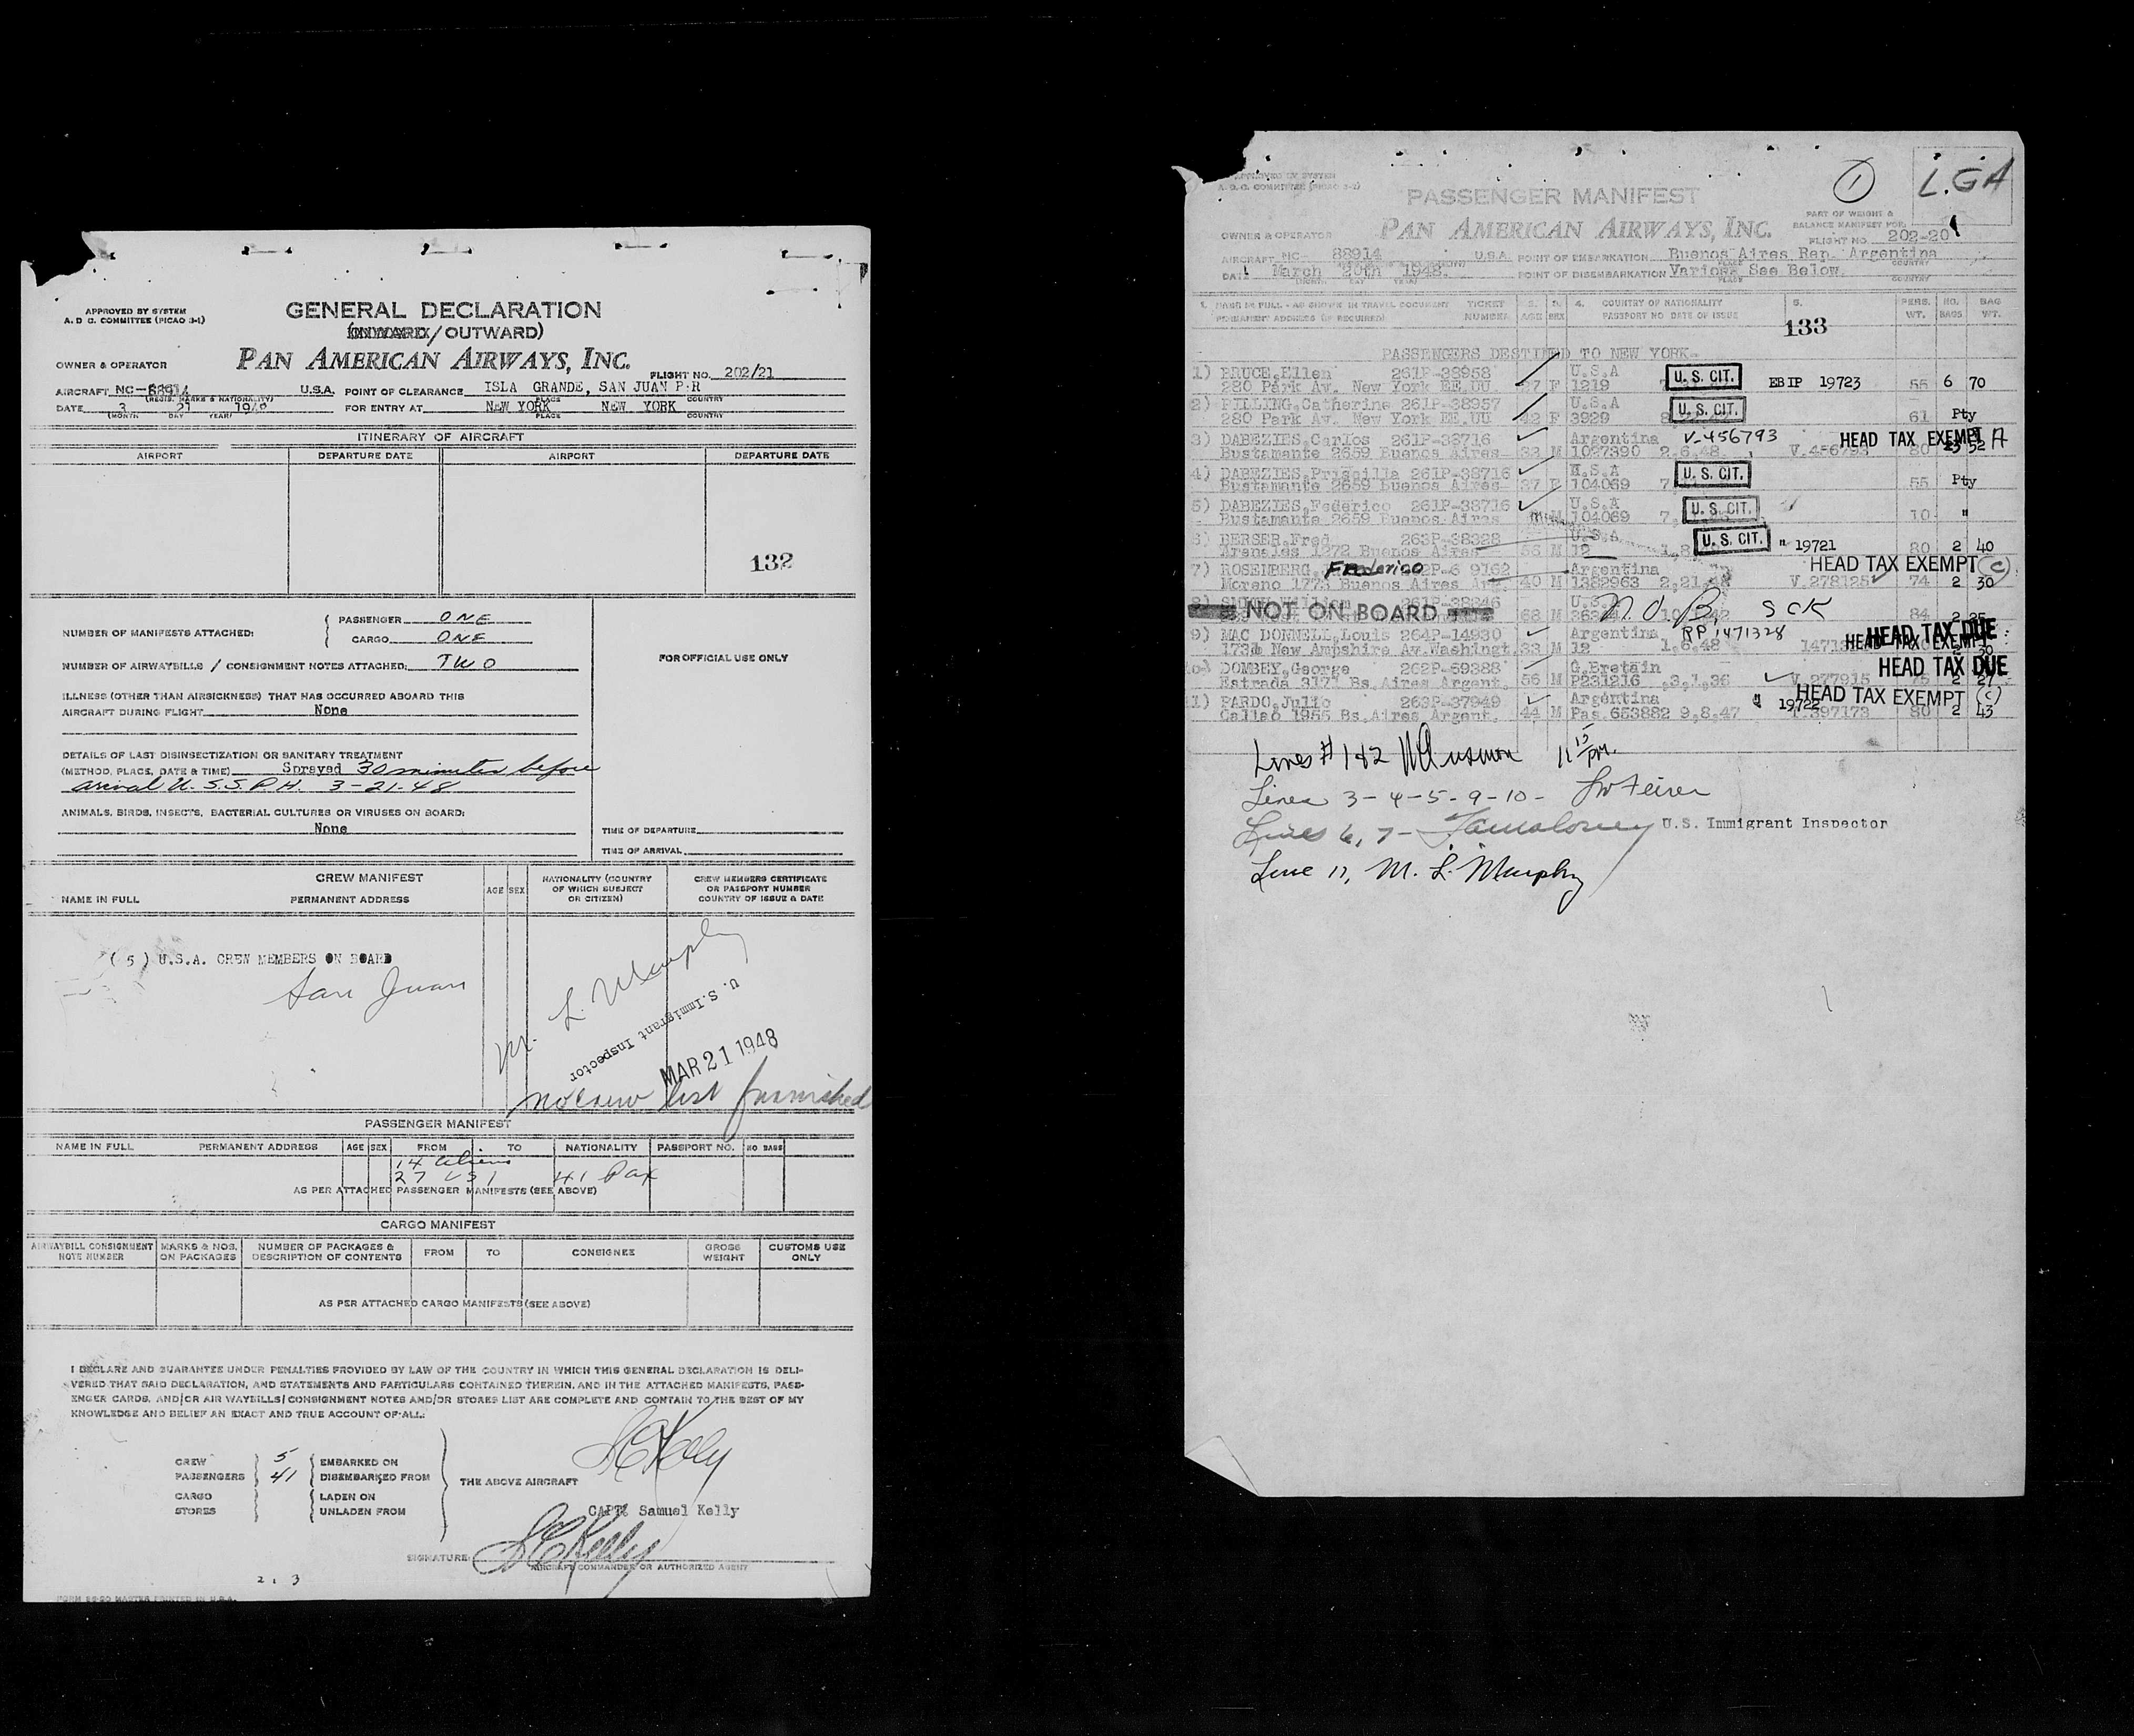 APPROVED BY SYSTEM
A. D C. COMMITTEE (PICAO 3-1)
GENERAL DECLARATION
(INWARD/OUTWARD)
OWNER & OPERATOR PAN AMERICAN AIRWAYS, INC. FLIGHT NO. 202/21
AIRCRAFT NC-88914 U.S.A. POINT OF CLEARANCE ISLA GRANDE, SAN JUAN P.R
(REGIS. MARKS & NATIONALITY) PLACE COUNTRY
DATE 3 21 1948 FOR ENTRY AT NEW YORK NEW YORK
(MONTH DAY YEAR) PLACE COUNTRY
ITINERARY OF AIRCRAFT
AIRPORT DEPARTURE DATE AIRPORT DEPARTURE DATE
132
NUMBER OF MANIFESTS ATTACHED: PASSENGER ONE
CARGO ONE
NUMBER OF AIRWAYBILLS / CONSIGNMENT NOTES ATTACHED: TWO
FOR OFFICIAL USE ONLY
ILLNESS (OTHER THAN AIRSICKNESS) THAT HAS OCCURRED ABOARD THIS
AIRCRAFT DURING FLIGHT None
DETAILS OF LAST DISINSECTIZATION OR SANITARY TREATMENT
(METHOD, PLACE, DATE & TIME) Sprayed 30 minutes before
arival U.S.S.P.H. 3-21-48
ANIMALS, BIRDS, INSECTS, BACTERIAL CULTURES OR VIRUSES ON BOARD:
None
TIME OF DEPARTURE
TIME OF ARRIVAL
CREW MANIFEST
NAME IN FULL PERMANENT ADDRESS AGE SEX NATIONALITY (COUNTRY OF WHICH SUBJECT OR CITIZEN) CREW MEMBERS CERTIFICATE OR PASSPORT NUMBER COUNTRY OF ISSUE & DATE
( 5 ) U.S.A. CREW MEMBERS ON BOARD
San Juan
M. L. Murphy
U. S. Immigrant Inspector
MAR 21 1948
no crew list furnished
PASSENGER MANIFEST
NAME IN FULL PERMANENT ADDRESS AGE SEX FROM TO NATIONALITY PASSPORT NO. NO BAGS
14 aliens
27 US 41 Pax
AS PER ATTACHED PASSENGER MANIFESTS (SEE ABOVE)
CARGO MANIFEST
AIRWAYBILL CONSIGNMENT NOTE NUMBER MARKS & NOS. ON PACKAGES NUMBER OF PACKAGES & DESCRIPTION OF CONTENTS FROM TO CONSIGNEE GROSS WEIGHT CUSTOMS USE ONLY
AS PER ATTACHED CARGO MANIFESTS (SEE ABOVE)
I DECLARE AND GUARANTEE UNDER PENALTIES PROVIDED BY LAW OF THE COUNTRY IN WHICH THIS GENERAL DECLARATION IS DELI-
VERED THAT SAID DECLARATION, AND STATEMENTS AND PARTICULARS CONTAINED THEREIN, AND IN THE ATTACHED MANIFESTS, PASS-
ENGER CARDS, AND/OR AIR WAYBILLS/CONSIGNMENT NOTES AND/OR STORES LIST ARE COMPLETE AND CONTAIN TO THE BEST OF MY
KNOWLEDGE AND BELIEF AN EXACT AND TRUE ACCOUNT OF ALL:
CREW 5 EMBARKED ON
PASSENGERS 41 DISEMBARKED FROM
CARGO LADEN ON
STORES UNLADEN FROM
THE ABOVE AIRCRAFT
S C Kelly
CAPT. Samuel Kelly
SIGNATURE S C Kelly
AIRCRAFT COMMANDER OR AUTHORIZED AGENT
2 . 3
APPROVED BY SYSTEM
A. D. C. COMMITTEE (PICAO 3-2)
1 L.GA
PASSENGER MANIFEST
PART OF WEIGHT &
BALANCE MANIFEST FOR
OWNER & OPERATOR PAN AMERICAN AIRWAYS, INC. FLIGHT NO. 202-20
AIRCRAFT NC- 88914 U.S.A. POINT OF EMBARKATION Buenos Aires Rep. Argentina
DATE March 20th 1948. POINT OF DISEMBARKATION Various See Below.
1. NAME IN FULL - AS SHOWN IN TRAVEL DOCUMENT TICKET 2. 3. 4. COUNTRY OF NATIONALITY 5. PERS. NO. BAG
PERMANENT ADDRESS (IF REQUIRED) NUMBER AGE SEX PASSPORT NO DATE OF ISSUE WT. BAGS WT.
133
PASSENGERS DESTINED TO NEW YORK-
1) BRUCE, Ellen 261P-38958 U.S.A U. S. CIT. EBIP 19723
280 Park Av. New York EE.UU. 27 F 1219 55 6 70
2) PILLING, Catherine 261P-38957 U.S.A U. S. CIT.
280 Park Av. New York EE.UU 42 F 3929 61 Pty
3) DABEZIES, Carlos 261P-38716 Argentina V-456793 HEAD TAX EXEMPT A
Bustamante 2659 Buenos Aires- 33 M 1027390 2,6,48. V.456793 80
4) DABEZIES, Priscilla 261P-38716 U.S.A U. S. CIT.
Bustamante 2659 Buenos Aires- 37 F 104069 55 Pty
5) DABEZIES, Federico 261P-38716 U.S.A U. S. CIT.
Bustamante 2659 Buenos Aires M 104069 10 "
6) BERSER, Fred 263P-38328 U.S.A U. S. CIT. " 19721
Arenales 1272 Buenos Aires- 56 M 12 80 2 40
7) ROSENBERG, Frederico 262P-69162 Argentina HEAD TAX EXEMPT (C)
Moreno 1773 Buenos Aires 40 M 1382963 2,21,48 V.278125 74 2 30
8) NOT ON BOARD 68 M N.O.B. SCK 84 2 25
9) MAC DONNELL, Louis 264P-14930 Argentina RP 1471328 HEAD TAX DUE
HEAD TAX EXEMPT
1734 New Ampshire Av. Washingt. 33 M 12 1,6,48
10) DOMBEY, George 262P-69388 G. Bretain HEAD TAX DUE
Estrada 3177 Bs. Aires Argent. 56 M P231216 ,3,1,36 V.277915 75 2 27
11) PARDO, Julio 263P-37949 Argentina " 19722 HEAD TAX EXEMPT (C)
Callao 1955 Bs. Aires Argent. 44 M Pas.653882 9,8,47 V.397173 80 2 43
Lines # 1&2 11 15 pm.
Lines 3-4-5-9-10-
Lines 6, 7- U.S. Immigrant Inspector
Line 11, M. L. Murphy